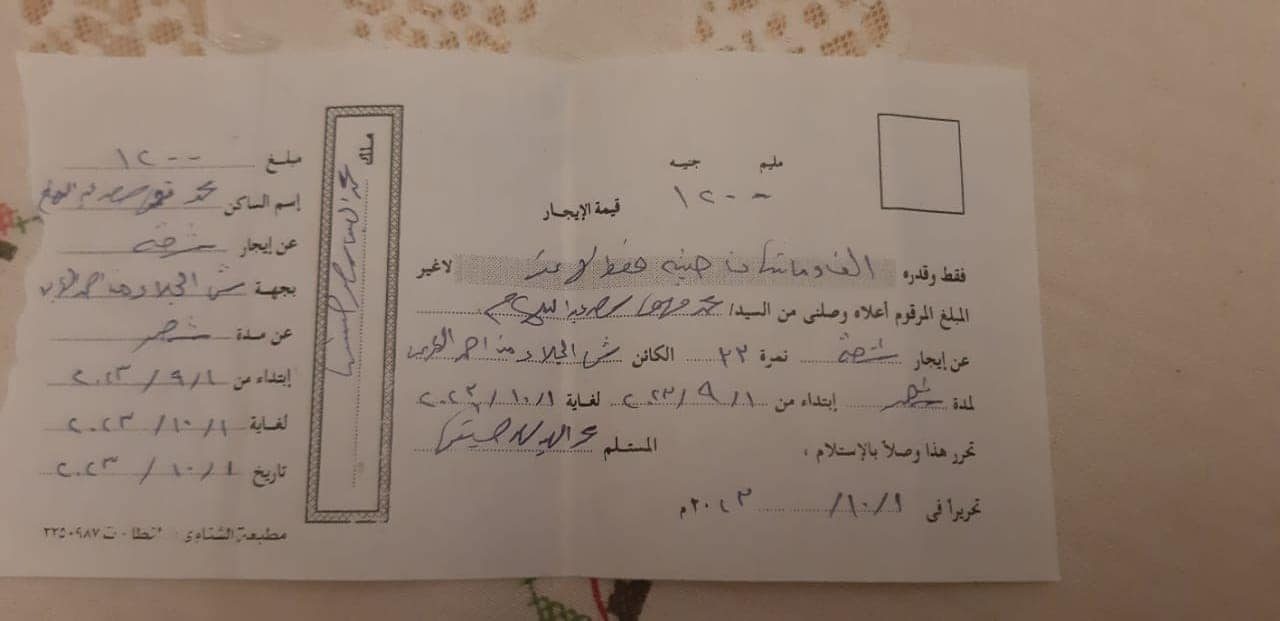 مليم جنيه
١٢٠٠
قيمة الإيجار
فقط وقدره الف ومائتان جنيه فقط لا غير لاغير
المبلغ المرقوم أعلاه وصلنى من السيد/ محمد
عن إيجار شقة نمرة ٢٣ الكائن ش الجلاء من احمد
لمدة شهر إبتداء من ٢٠٢٣/٩/١ لغاية ٢٠٢٣/١٠/١
تحرر هذا وصلاً بالإستلام ، المستلم
تحريراً فى ١٠/١/ ٢٠٢٣م
ملك محمد
مبلغ ١٢٠٠
إسم الساكن محمد
عن إيجار شقة
بجهة ش الجلاء من احمد
عن مدة شهر
إبتداء من ٢٠٢٣/٩/١
لغاية ٢٠٢٣/١٠/١
تاريخ ٢٠٢٣/١٠/١
مطبعة الشناوى ت ٣٣٥٠٩٨٧